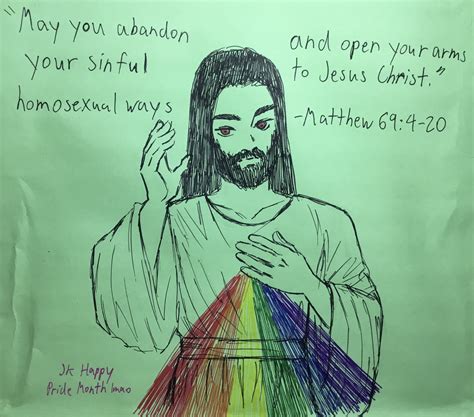 "May you abandon
your sinful
homosexual ways
and open your arms
to Jesus Christ."
-Matthew 69:4-20
Jk Happy
Pride Month lmao